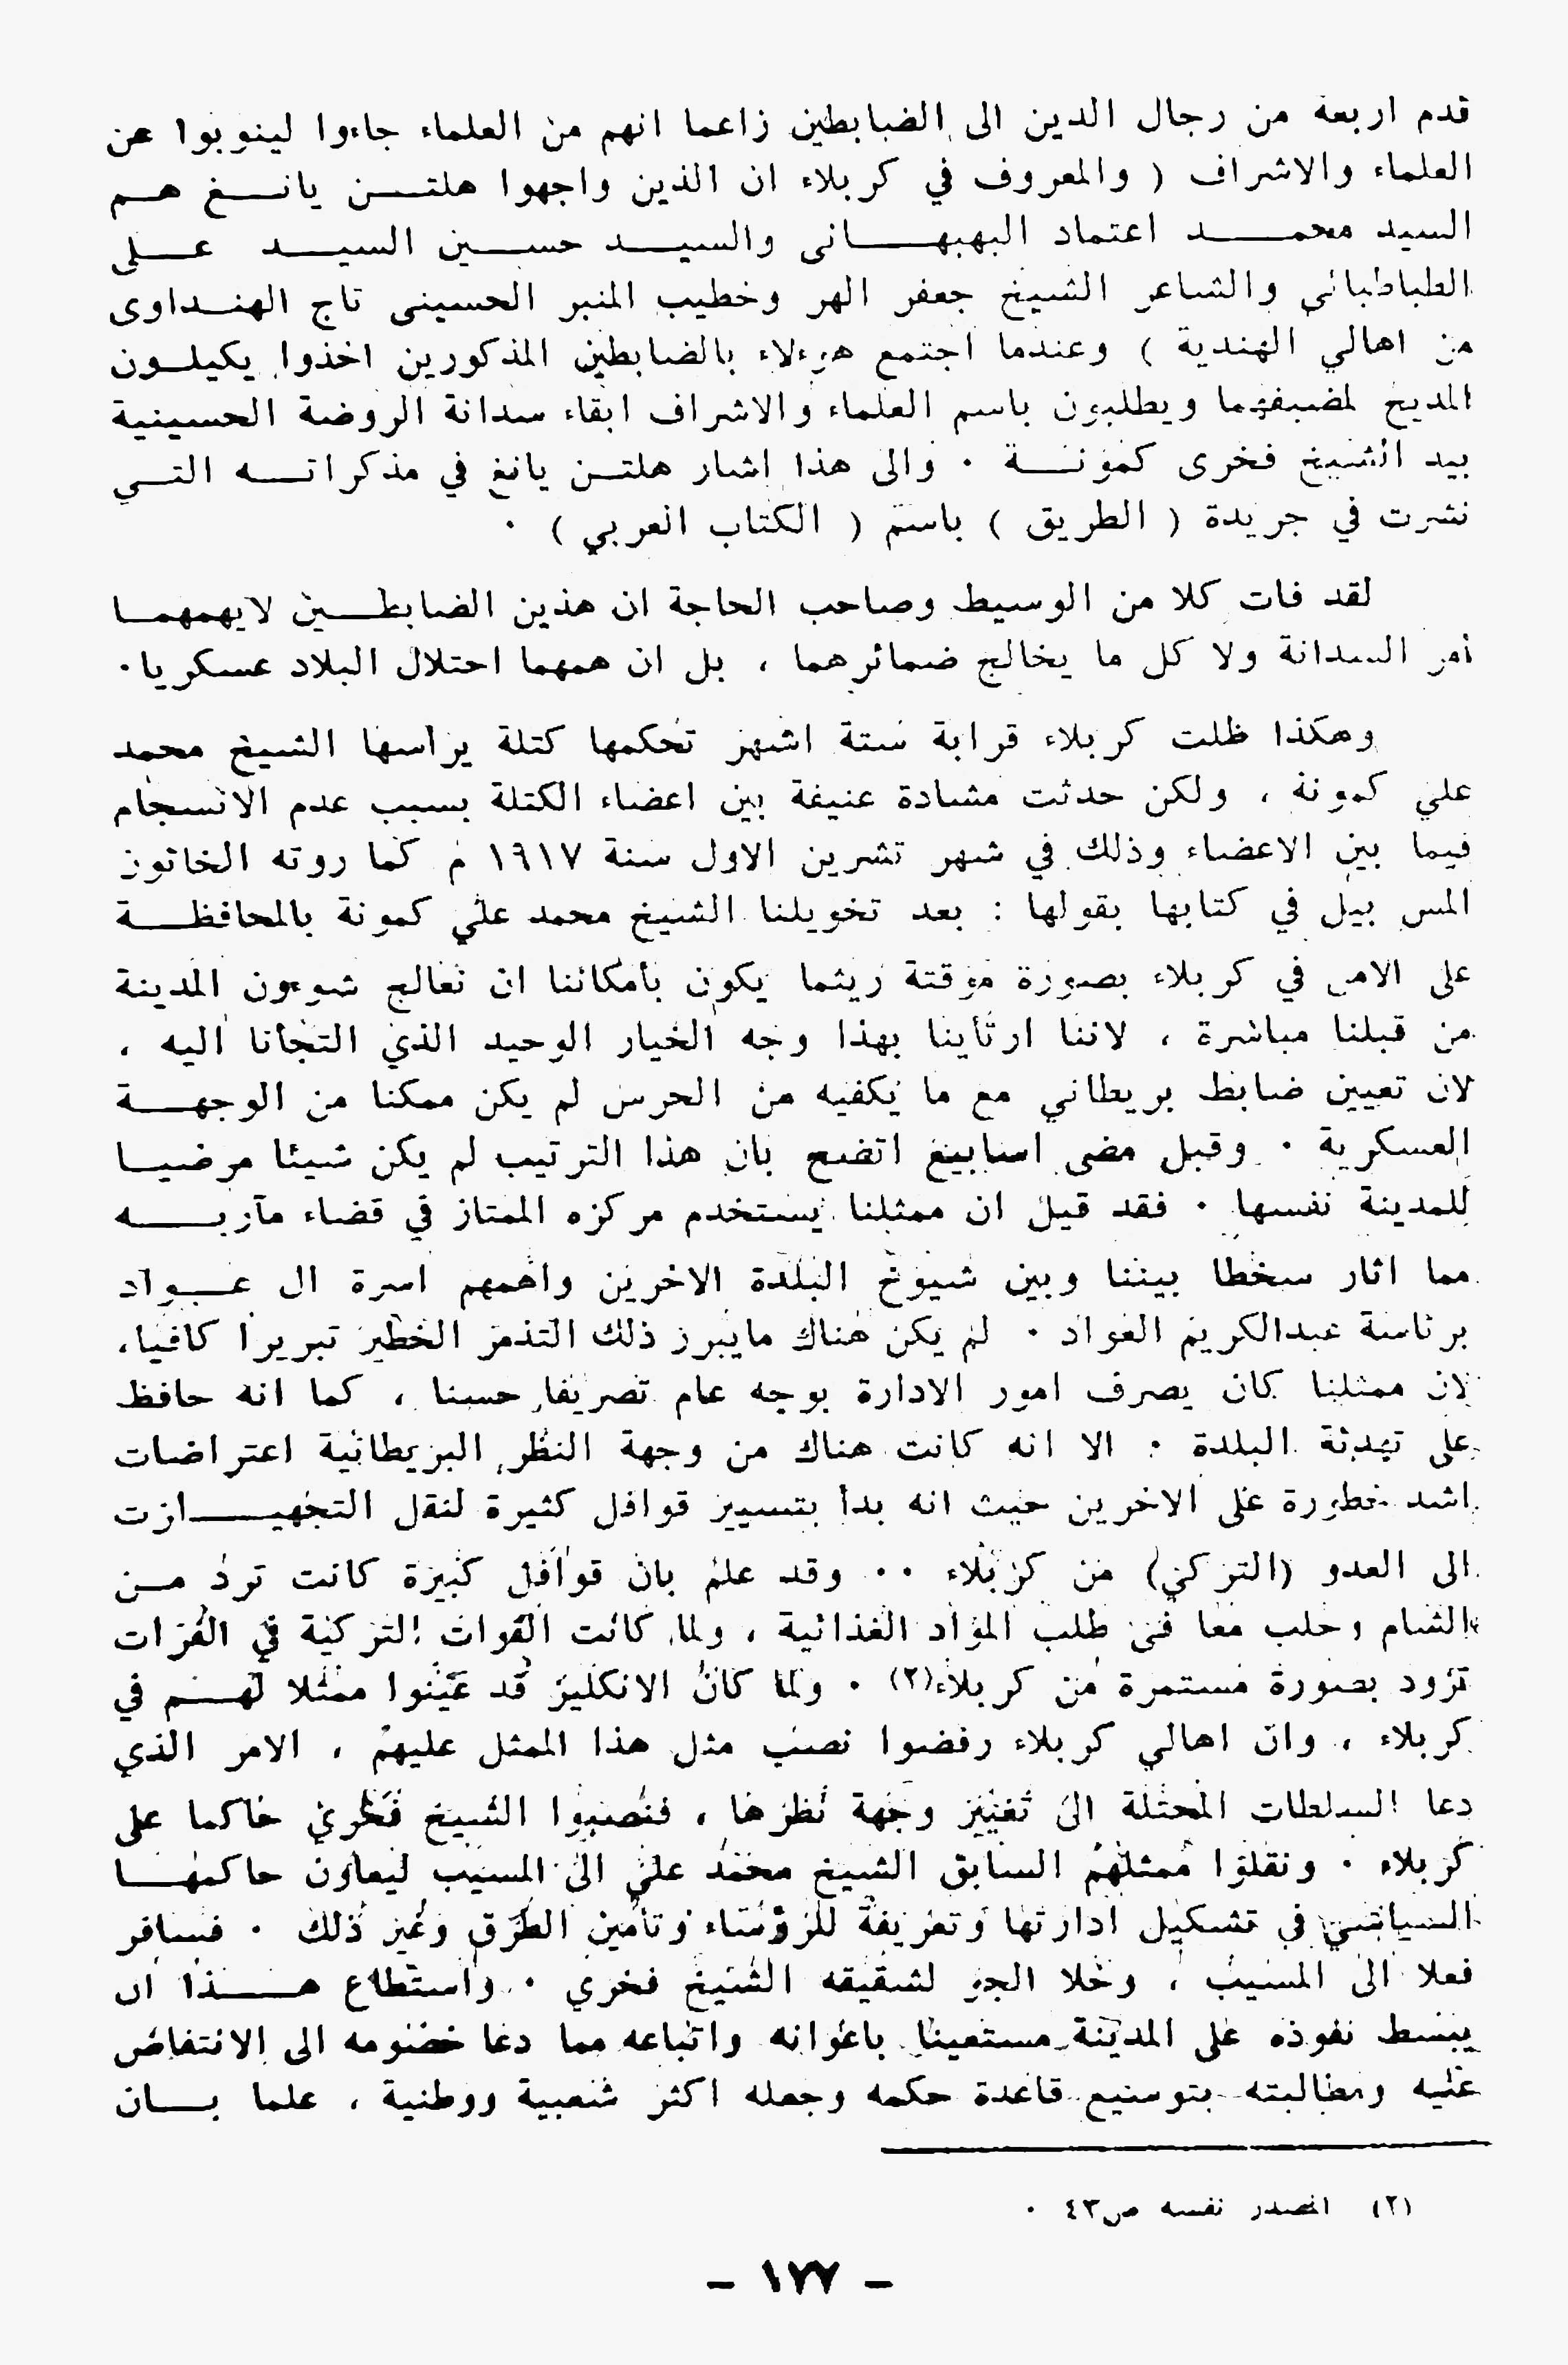 قدم اربعة من رجال الدين الى الضبابطين زاعما انهم من العلماء جاءوا لينوبوا عن
العلماء والاشراف ( والمعروف في كربلاء ان الذين واجهوا هلتن يانغ هم
السيد محمد اعتماد البهبهانى والسيد حسين السيد على
الطباطبائى والشاعر الشيخ جعفر الهر وخطيب المنبر الحسينى تاج الهنداوى
من اهالي الهندية ) وعندما اجتمع هوءلاء بالضابطين المذكورين اخذوا يكيلون
المديح لمضيفهما ويطلبون باسم العلماء والاشراف ابقاء سدانة الروضة الحسينية
بيد الشيخ فخرى كمونة . والى هذا اشار هلتن يانغ في مذكراته التي
نشرت في جريدة ( الطريق ) باسم ( الكتاب العربي ) .
لقد فات كلا من الوسيط وصاحب الحاجة ان هذين الضابطين لايهمهما
أمر السدانة ولا كل ما يخالج ضمائرهما ، بل ان همهما احتلال البلاد عسكريا .
وهكذا ظلت كربلاء قرابة ستة اشهر تحكمها كتلة يرأسها الشيخ محمد
علي كمونة ، ولكن حدثت مشادة عنيفة بين اعضاء الكتلة بسبب عدم الانسجام
فيما بين الاعضاء وذلك في شهر تشرين الاول سنة ١٩١٧ م كما روته الخاتون
المس بيل في كتابها بقولها : بعد تخويلنا الشيخ محمد علي كمونة بالمحافظة
على الامن في كربلاء بصورة موقتة ريثما يكون بأمكاننا ان نعالج شوءون المدينة
من قبلنا مباشرة ، لاننا ارتأينا بهذا وجه الخيار الوحيد الذي التجأنا اليه ،
لان تعيين ضابط بريطاني مع ما يكفيه من الحرس لم يكن ممكنا من الوجهة
العسكرية . وقبل مضى اسابيع اتضح بان هذا الترتيب لم يكن شيئا مرضيا
للمدينة نفسها . فقد قيل ان ممثلنا يستخدم مركزه الممتاز في قضاء مآربه
مما اثار سخطا بيننا وبين شيوخ البلدة الاخرين واهمهم اسرة ال عواد
برئاسة عبدالكريم العواد . لم يكن هناك مايبرر ذلك التذمر الخطير تبريرا كافيا ،
لان ممثلنا كان يصرف امور الادارة بوجه عام تصريفا حسنا ، كما انه حافظ
على تهدئة البلدة . الا انه كانت هناك من وجهة النظر البريطانية اعتراضات
اشد خطورة على الاخرين حيث انه بدأ بتسيير قوافل كثيرة لنقل التجهيازت
الى العدو (التركي) من كربلاء . . وقد علم بان قوافل كبيرة كانت ترد من
الشام وحلب معا في طلب المؤاد الغذائية ، ولما كانت القوات التركية في الفرات
تزود بصورة مستمرة من كربلاء(٢) . ولما كان الانكليز قد عينوا ممثلا لهم في
كربلاء ، وان اهالي كربلاء رفضوا نصب مثل هذا الممثل عليهم ، الامر الذي
دعا السلطات المحتلة الى تغيير وجهة نظرها ، فنصبوا الشيخ فخري حاكما على
كربلاء . ونقلوا ممثلهم السابق الشيخ محمد علي الى المسيب ليعاون حاكمها
السياسي في تشكيل ادارتها وتعريفة للرؤساء وتأمين الطرق وغير ذلك . فسافر
فعلا الى المسيب ، وخلا الجو لشقيقه الشيخ فخري . واستطاع هذا ان
يبسط نفوذه على المدينة مستعينا باعوانه واتباعه مما دعا خصومه الى الانتفاض
عليه ومطالبته بتوسيع قاعدة حكمه وجعله اكثر شعبية ووطنية ، علما بان
(٢) المصدر نفسه ص٤٣ .
- ١٧٧ -